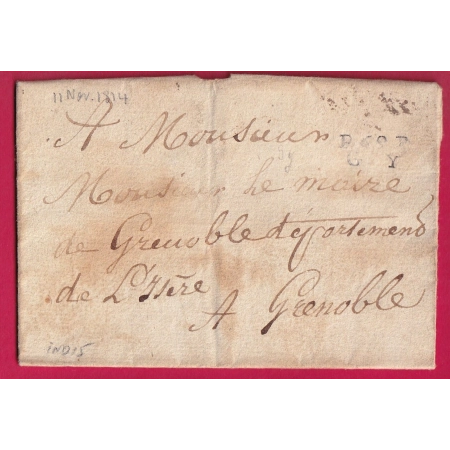 11 Nov. 1814
A Monsieur
Monsieur Le maire
de Grenoble département
de L'Isère
A Grenoble
IND 15